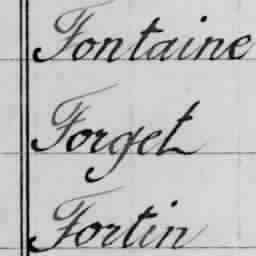 Fontaine
Forget
Fortin